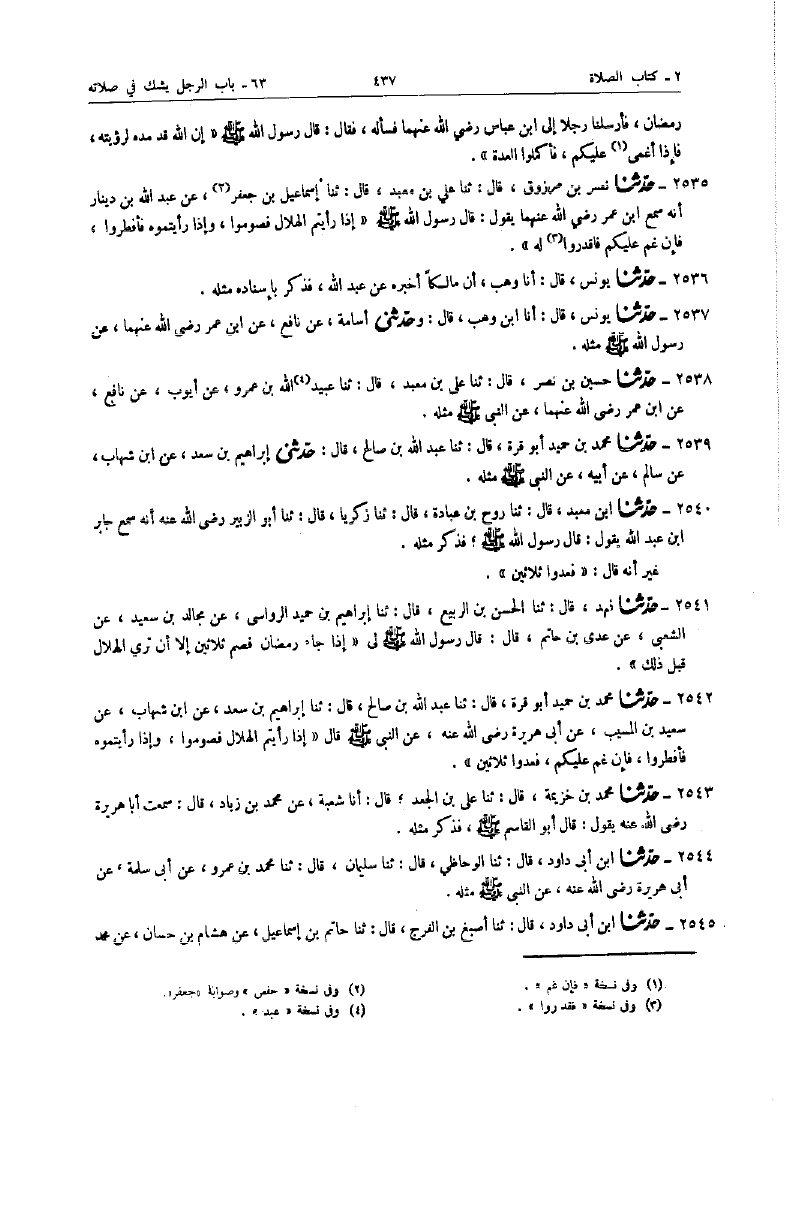 ٢ ـ كتاب الصلاة ٤٣٧ ٦٣ـ باب الرجل يشك في صلاته
رمضان ، فأرسلنا رجلا إلى ابن عباس رضي الله عنهما فسأله ، فقال : قال رسول الله ﷺ « إن الله قد مده لرؤيته ،
فإذا أغمى(١) عليكم ، فأكملوا العدة » .
٢٥٣٥ ـ حدثنا نصر بن مرزوق ، قال : ثنا علي بن معبد ، قال : ثنا إسماعيل بن جعفر(٢) ، عن عبد الله بن دينار
أنه سمع ابن عمر رضي الله عنهما يقول : قال رسول الله ﷺ « إذا رأيتم الهلال فصوموا ، وإذا رأيتموه فأفطروا ،
فإن غم عليكم فاقدروا(٣) له » .
٢٥٣٦ ـ حدثنا يونس ، قال : أنا وهب ، أن مالكاً أخبره عن عبد الله ، فذكر بإسناده مثله .
٢٥٣٧ ـ حدثنا يونس ، قال : أنا ابن وهب ، قال : وحدثني أسامة ، عن نافع ، عن ابن عمر رضي الله عنهما ، عن
رسول الله ﷺ مثله .
٢٥٣٨ ـ حدثنا حسين بن نصر ، قال : ثنا علي بن معبد ، قال : ثنا عبيد(٤) الله بن عمرو ، عن أيوب ، عن نافع ،
عن ابن عمر رضى الله عنهما ، عن النبى ﷺ مثله .
٢٥٣٩ ـ حدثنا محمد بن حميد أبو قرة ، قال : ثنا عبد الله بن صالح ، قال : حدثنى إبراهيم بن سعد ، عن ابن شهاب ،
عن سالم ، عن أبيه ، عن النبى ﷺ مثله .
٢٥٤٠ ـ حدثنا ابن معبد ، قال : ثنا روح بن عبادة ، قال : ثنا زكريا ، قال : ثنا أبو الزبير رضى الله عنه أنه سمع جابر
ابن عبد الله يقول : قال رسول الله ﷺ ؛ فذكر مثله .
غير أنه قال : « فعدوا ثلاثين » .
٢٥٤١ ـ حدثنا فهد ، قال : ثنا الحسن بن الربيع ، قال : ثنا إبراهيم بن حميد الرواسى ، عن مجالد بن سعيد ، عن
الشعبى ، عن عدى بن حاتم ، قال : قال رسول الله ﷺ لى « إذا جاء رمضان فصم ثلاثين إلا أن ترى الهلال
قبل ذلك » .
٢٥٤٢ ـ حدثنا محمد بن حميد أبو قرة ، قال : ثنا عبد الله بن صالح ، قال : ثنا إبراهيم بن سعد ، عن ابن شهاب ، عن
سعيد بن المسيب ، عن أبى هريرة رضى الله عنه ، عن النبى ﷺ قال « إذا رأيتم الهلال فصوموا ، وإذا رأيتموه
فأفطروا ، فإن غم عليكم ، فعدوا ثلاثين » .
٢٥٤٣ ـ حدثنا محمد بن خزيمة ، قال : ثنا على بن الجعد ؛ قال : أنا شعبة ، عن محمد بن زياد ، قال : سمعت أبا هريرة
رضى الله عنه يقول : قال أبو القاسم ﷺ ، فذكر مثله .
٢٥٤٤ ـ حدثنا ابن أبى داود ، قال : ثنا الوحاظي ، قال : ثنا سليمان ، قال : ثنا محمد بن عمرو ، عن أبى سلمة ، عن
أبى هريرة رضى الله عنه ، عن النبى ﷺ مثله .
٢٥٤٥ ـ حدثنا ابن أبى داود ، قال : ثنا أصبغ بن الفرج ، قال : ثنا حاتم بن إسماعيل ، عن هشام بن حسان ، عن محمد
(١) وفى نسخة « فإن غم » . (٢) وفى نسخة « حفص » وصوابه «جعفر».
(٣) وفى نسخة « فقدروا » . (٤) وفى نسخة « عبد » .